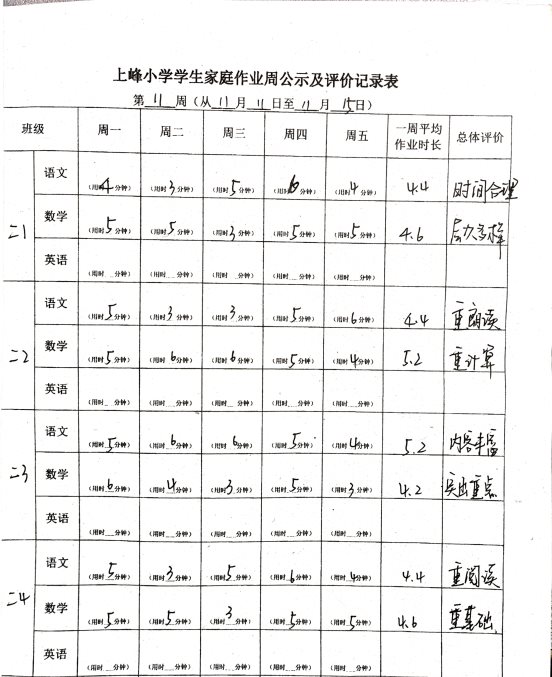 上峰小学学生家庭作业周公示及评价记录表
第 11 周（从 11 月 11 日至 11 月 15 日）
班级 周一 周二 周三 周四 周五 一周平均作业时长 总体评价
二1 语文 （用时4分钟） （用时3分钟） （用时5分钟） （用时6分钟） （用时4分钟） 4.4 时间合理
数学 （用时5分钟） （用时5分钟） （用时3分钟） （用时5分钟） （用时5分钟） 4.6 层次多样
英语 （用时__分钟） （用时__分钟） （用时__分钟） （用时__分钟） （用时__分钟）
二2 语文 （用时5分钟） （用时3分钟） （用时3分钟） （用时5分钟） （用时6分钟） 4.4 重朗读
数学 （用时5分钟） （用时6分钟） （用时6分钟） （用时5分钟） （用时4分钟） 5.2 重计算
英语 （用时__分钟） （用时__分钟） （用时__分钟） （用时__分钟） （用时__分钟）
二3 语文 （用时5分钟） （用时6分钟） （用时6分钟） （用时5分钟） （用时4分钟） 5.2 内容丰富
数学 （用时6分钟） （用时4分钟） （用时3分钟） （用时5分钟） （用时3分钟） 4.2 突出重点
英语 （用时__分钟） （用时__分钟） （用时__分钟） （用时__分钟） （用时__分钟）
二4 语文 （用时5分钟） （用时3分钟） （用时5分钟） （用时6分钟） （用时4分钟） 4.4 重阅读
数学 （用时5分钟） （用时5分钟） （用时3分钟） （用时5分钟） （用时5分钟） 4.6 重基础
英语 （用时__分钟） （用时__分钟） （用时__分钟） （用时__分钟） （用时__分钟）